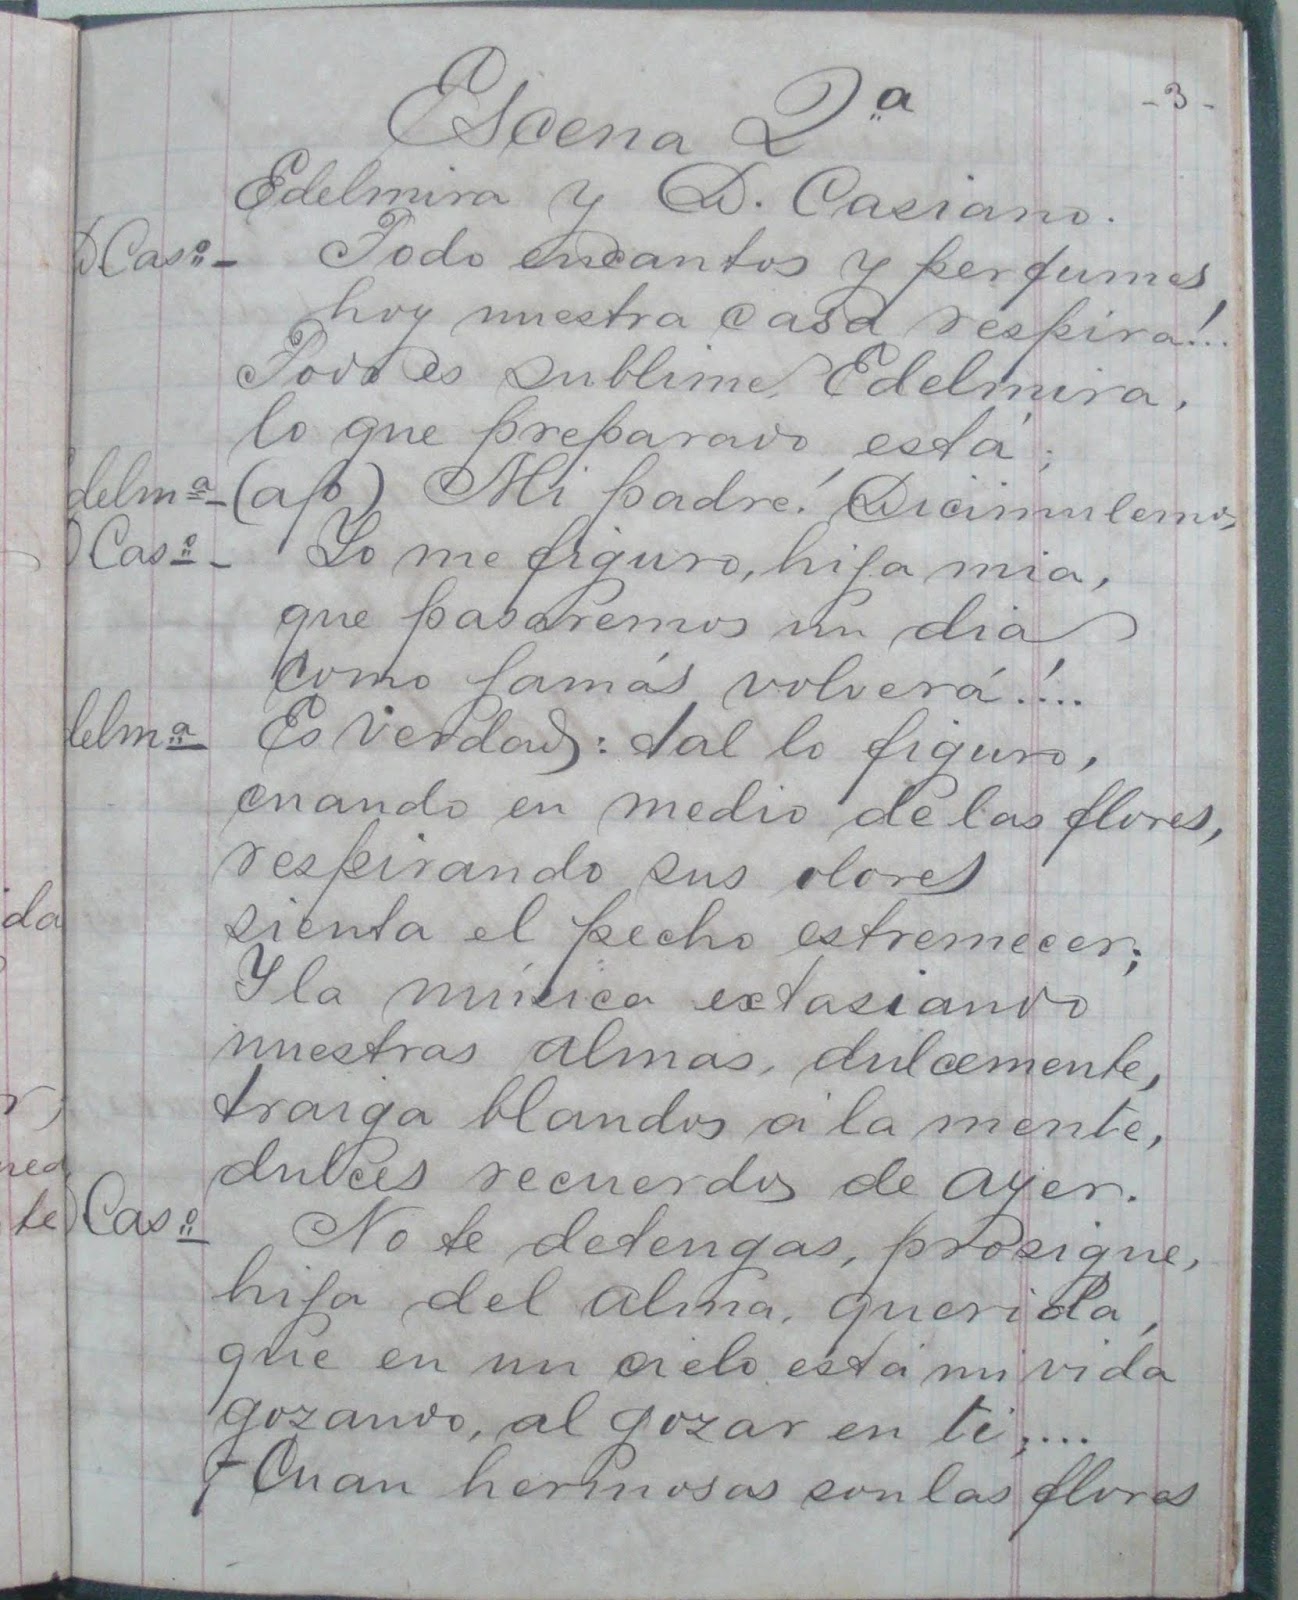 -3-
Escena 2ª
Edelmira y D. Casiano.
D Casº- Todo encantos y perfumes
hoy nuestra casa respira!..
Todo es sublime, Edelmira,
lo que preparado está;
delmª-(ap) Mi padre! Dicimulemos
D Casº- Yo me figuro, hija mia,
que pasaremos un dia
como jamás volverá!...
delmª Es verdad: tal lo figuro,
cuando en medio de las flores,
respirando sus olores
sienta el pecho estremecer;
Y la música extasiando
nuestras almas, dulcemente,
traiga blandos á la mente,
dulces recuerdos de ayer.
D Casº No te detengas, prosigue,
hija del alma, querida,
que en un cielo está mi vida
gozando, al gozar en ti;....
¡Cuan hermosas son las flores
da
r,
nea
te